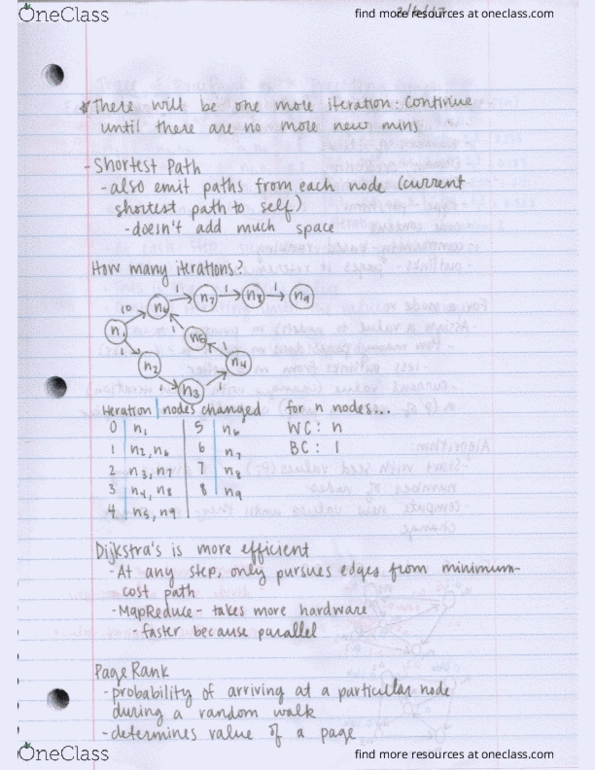 OneClass
find more resources at oneclass.com
* There will be one more iteration: continue
until there are no more new mins
- Shortest Path
- also emit paths from each node (current
shortest path to self)
- doesn't add much space
How many iterations?
n1 10 n6 1 n7 1 n8 1 n9
1 n2 1 n3 1 n4 1 n5 1
Iteration nodes changed for n nodes...
0 n1 5 n6 WC: n
1 n2, n6 6 n7 BC: 1
2 n3, n7 7 n8
3 n4, n8 8 n9
4 n5, n9
Dijkstra's is more efficient
- At any step, only pursues edges from minimum-
cost path
- MapReduce - takes more hardware
- faster because parallel
PageRank
- probability of arriving at a particular node
during a random walk
- determines value of a page
OneClass
find more resources at oneclass.com